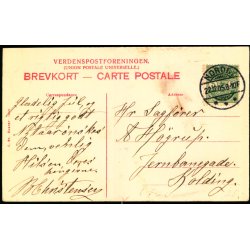 VERDENSPOSTFORENINGEN.
(UNION POSTALE UNIVERSELLE.)
BREVKORT — CARTE POSTALE
Correspondance
Adresse.
KOLDING
Glædelig Jul, og
et rigtig godt
Nytaar ønskes
Dem, venlig
Hilsen, Deres
hengivne
Christensen
Hr. Sagfører
Høgrup.
Jernbanegade.
Kolding.